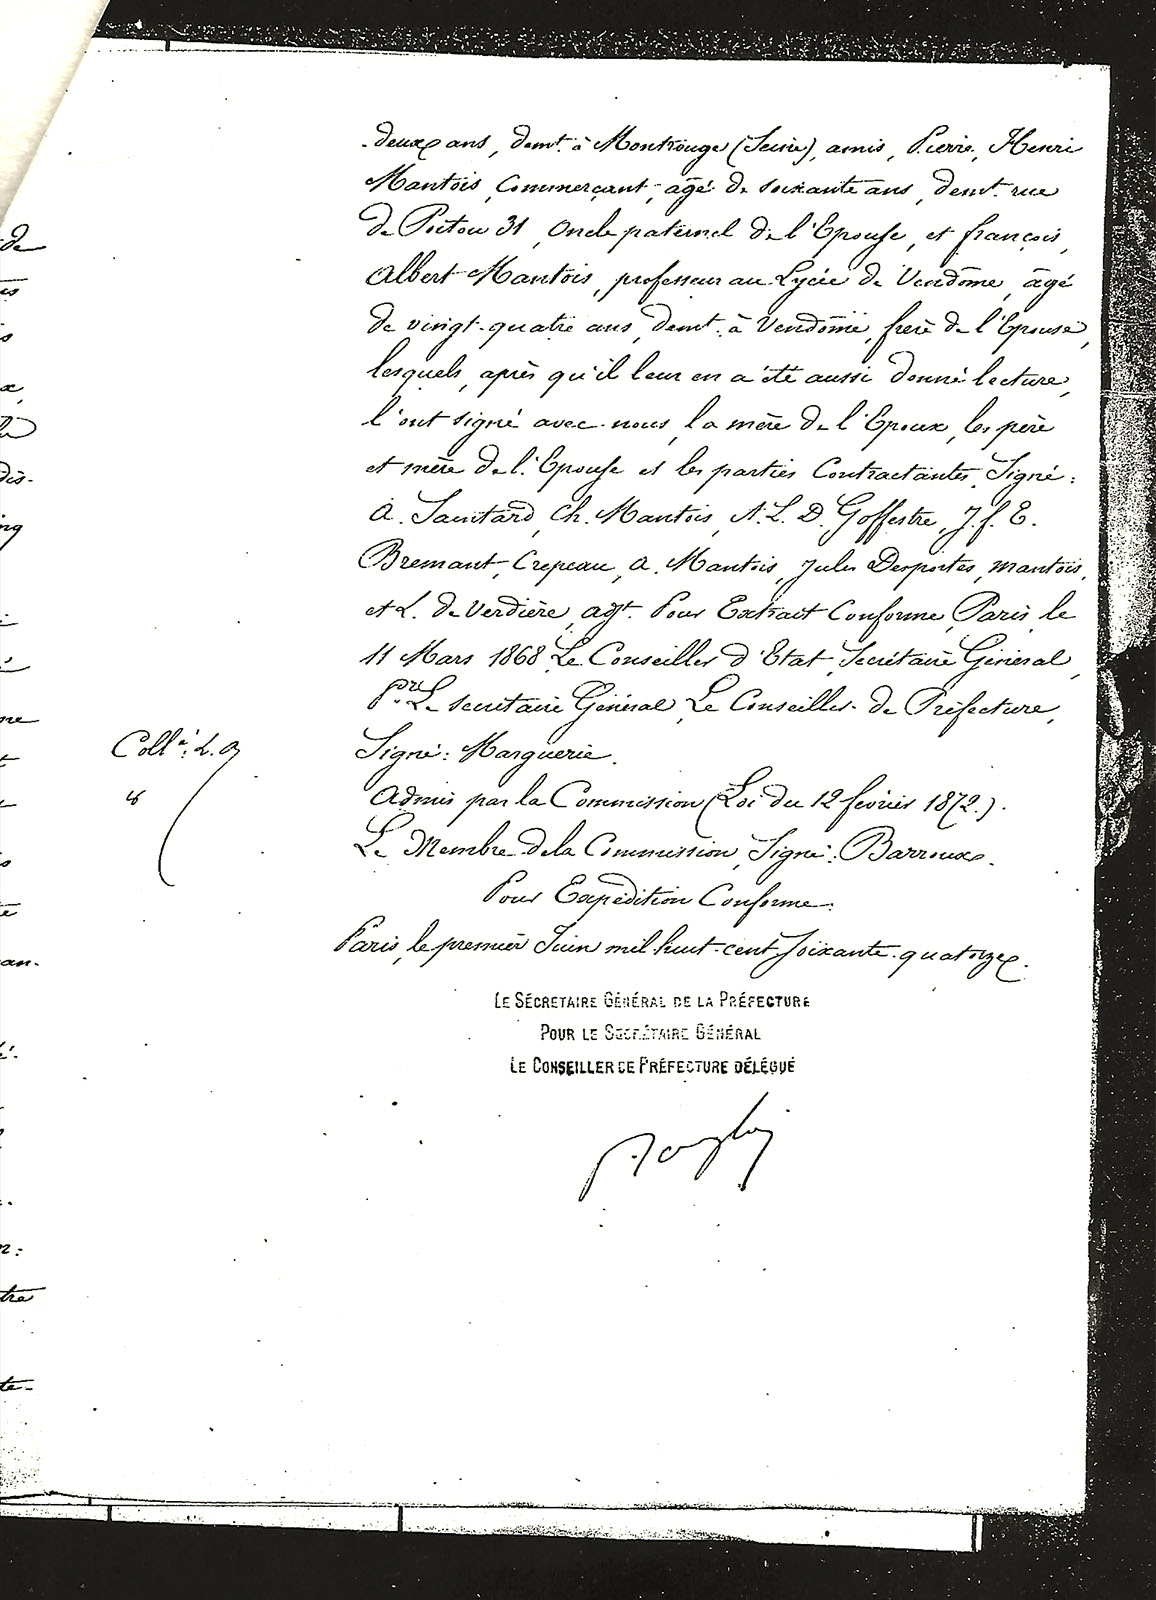 -deux ans, demt. à Montrouge (Seine), amis, Pierre, Henri
Mantois, Commerçant, âgé de soixante ans, demt. rue
de Poitou 31, oncle paternel de l'Epouse, et françois,
Albert Mantois, professeur au Lycée de Vendôme, âgé
de vingt-quatre ans, demt. à Vendôme, frère de l'Epouse,
lesquels, après qu'il leur en a été aussi donné lecture,
l'ont signé avec nous, la mère de l'Epoux, les père
et mère de l'Epouse et les parties Contractantes, Signé:
A. Saintard, Ch. Mantois, A. L. D. Goffestre, J. f. E.
Bremant, Crepeau, A. Mantois, Jules Desportes, Mantois,
et L. de Verdière, adjt. Pour Extrait Conforme, Paris, le
11 Mars 1868, Le Conseiller d'Etat, Secrétaire Général,
pr. Le secrétaire Général, Le Conseiller de Préfecture,
Collé: L. A
Signé: Marguerie.
Admis par la Commission (Loi du 12 février 1872.).
Le Membre de la Commission, Signé: Barroux.
Pour Expédition Conforme:
Paris, le premier Juin mil huit-cent soixante-quatorze.
LE SÉCRETAIRE GÉNÉRAL DE LA PRÉFECTURE
POUR LE SECRÉTAIRE GÉNÉRAL
LE CONSEILLER DE PRÉFECTURE DÉLÉGUÉ